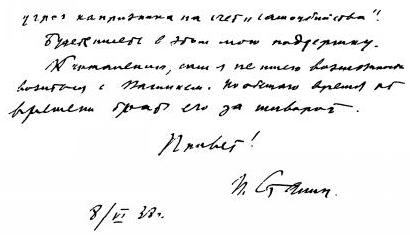 угроз капризника насчет "самоубийства".
Будете иметь в этом мою поддержку.
К сожалению, сам я не имею возможности
возиться с Пашиным. Но обещаю время от
времени брать его за шиворот.
Привет!
И. Сталин.
8/VI 38г.